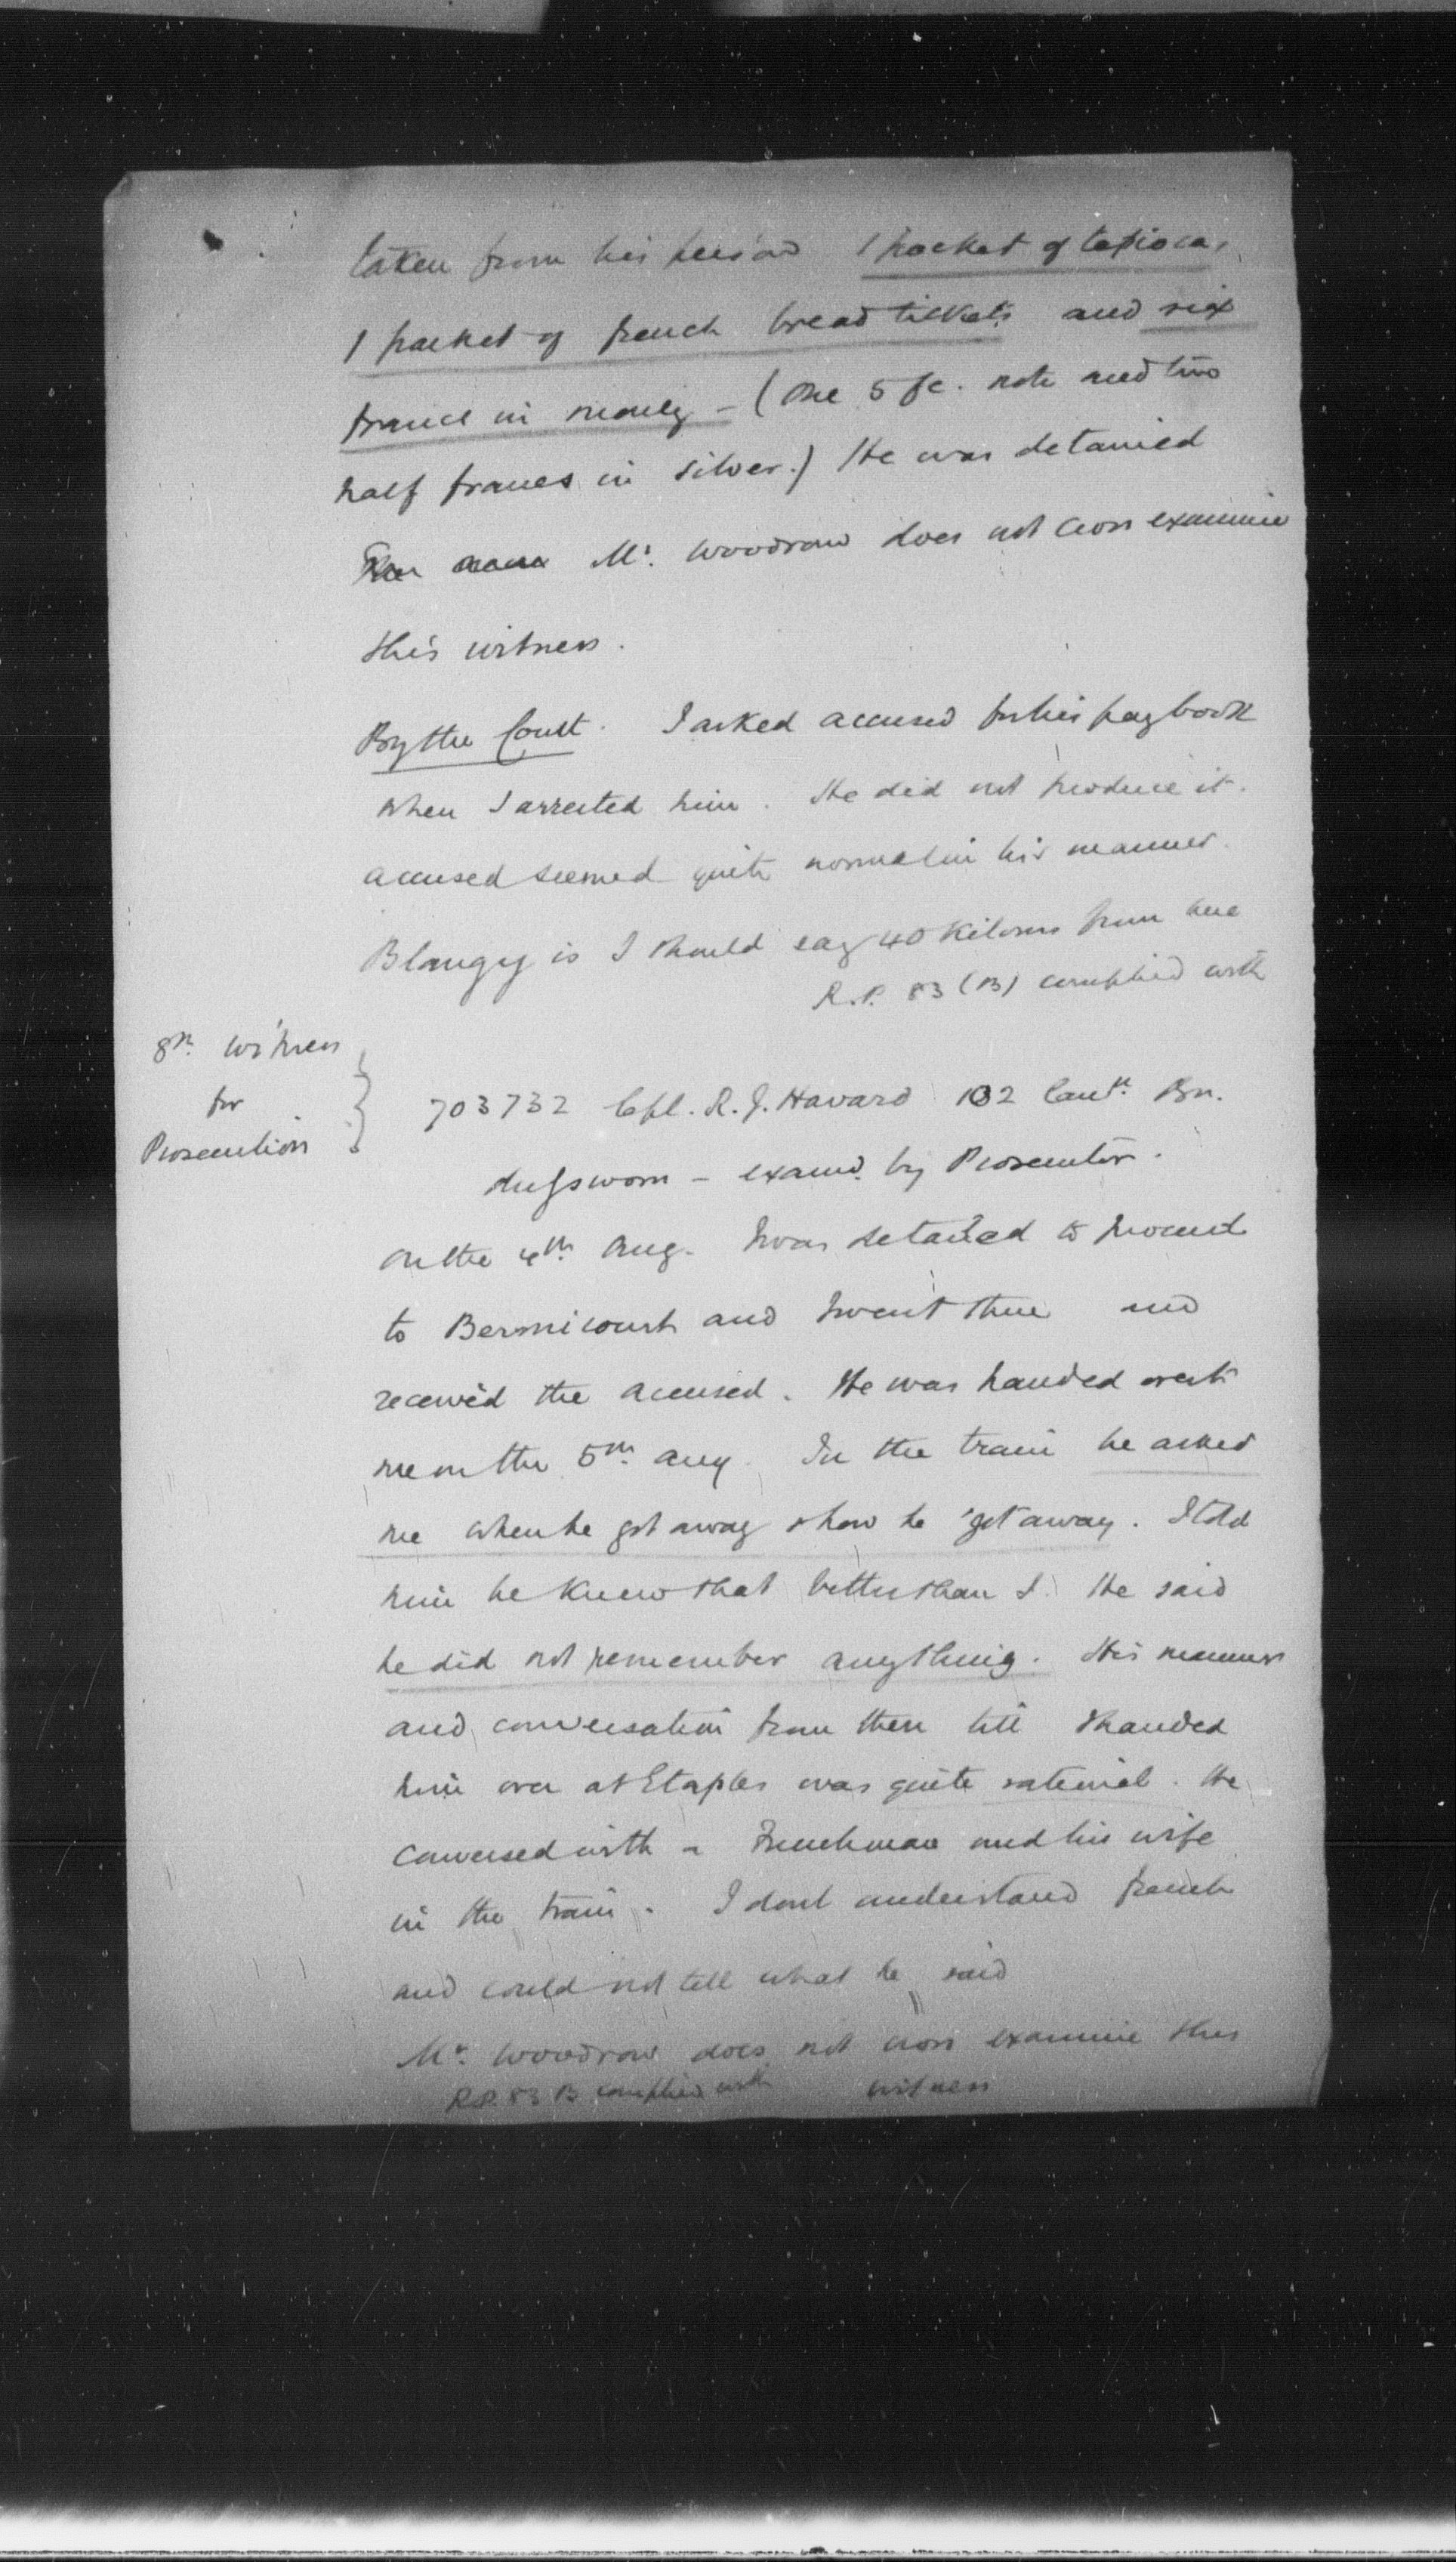 taken from his person 1 packet of tapioca,
1 packet of french bread tickets and six
francs in money - (One 5 fc. note and two
half francs in silver.) He was detained
Mr. Woodrow does not cross examine
this witness.
By the Court. I asked accused for his paybook
when I arrested him. He did not produce it.
accused seemed quite normal in his manner.
Blangy is I should say 40 Kiloms from here
R.P. 83 (B) complied with
8th witness
for
Prosecution
703732 Cpl. R. J. Havard 102 Can. Bn.
duly sworn - examd. by Prosecutor.
On the 4th Aug. I was detailed to proceed
to Bermicourt and I went there and
received the accused. He was handed over to
me on the 5th Aug. In the train he asked
me when he got away & how he got away. I told
him he knew that better than I. He said
he did not remember anything. His manner
and conversation from then till I handed
him over at Etaples was quite rational. He
conversed with a Frenchman and his wife
in the train. I dont understand french
and could not tell what he said
Mr. Woodrow does not cross examine this
witness
R.P. 83 B complied with